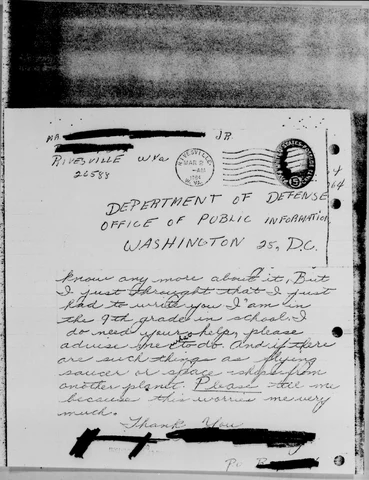 MR. JR.
RIVESVILLE W Va
26588
RIVESVILLE
MAR 2
AM
1964
W. VA.
UNITED STATES POSTAGE
5
4
64
DEPERTMENT OF DEFENSE
OFFICE OF PUBLIC INFORMATION
WASHINGTON 25, D.C.
know any more about it, But
I just throught that I just
had to write you I am in
the 9th grade in school. I
do need your help, please
advise me what to do. And if there
are such things as flying
saucer or space ships from
another planet. Please tell me
because this worries me very
much.
Thank You